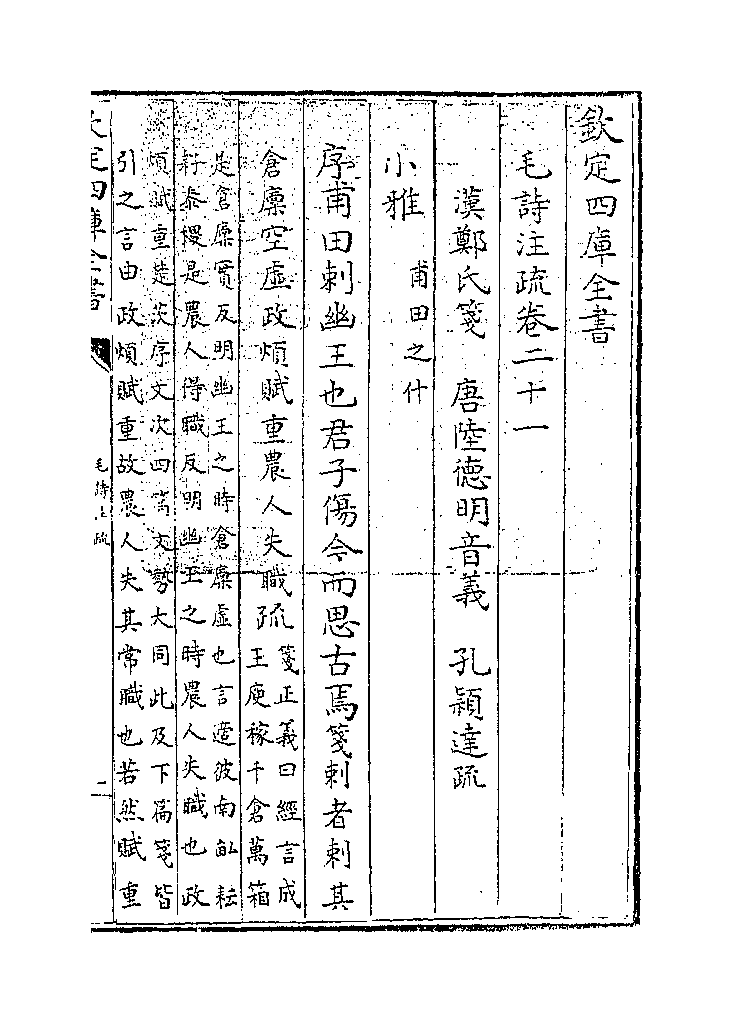 欽定四庫全書
毛詩注疏卷二十一
漢鄭氏箋　唐陸德明音義　孔穎達疏
小雅　甫田之什
序甫田刺幽王也君子傷今而思古焉箋刺者刺其
倉廪空虛政煩賦重農人失職疏
箋正義曰經言成
王庾稼千倉萬箱
是倉廪實反明幽王之時倉廪虛也言適彼南畆耘
耔黍稷是農人得職反明幽王之時農人失職也政
煩賦重楚茨序文次四篇文勢大同此及下篇箋皆
引之言由政煩賦重故農人失其常職也若然賦重
欽定四庫全書
毛詩注疏
一